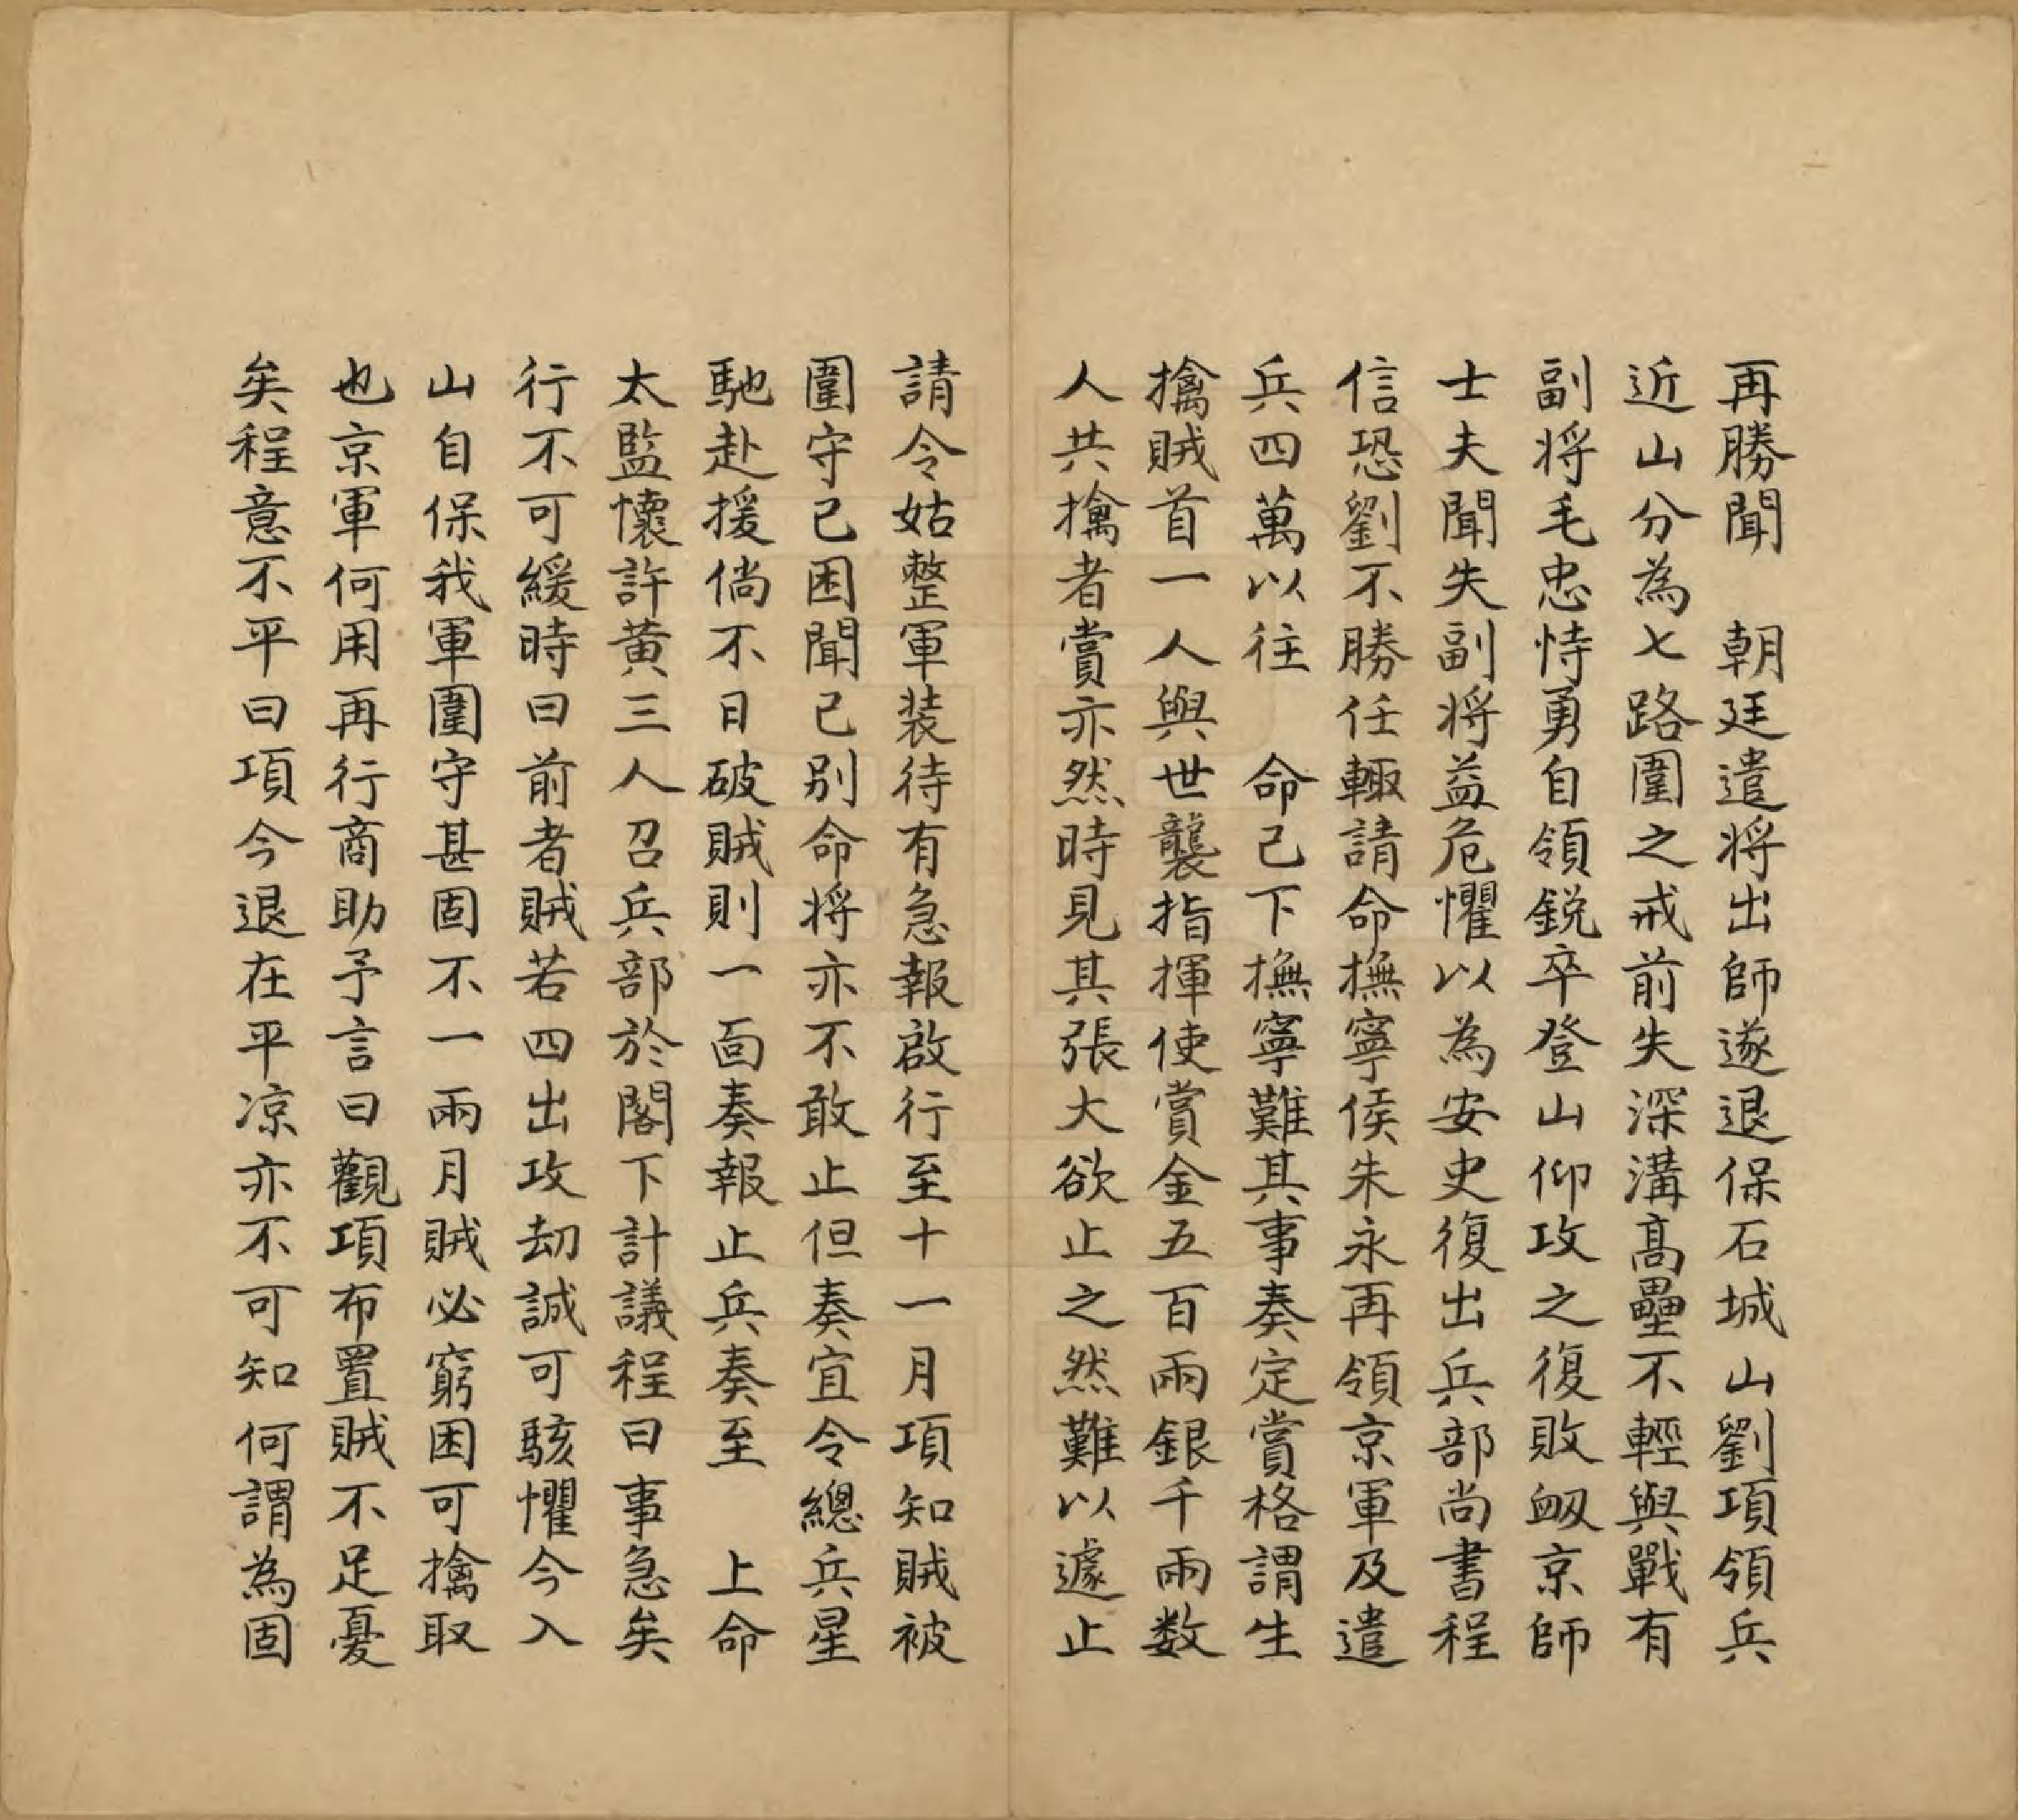 再勝聞　朝廷遣将出師遂退保石城山劉項領兵
近山分為七路圍之戒前失深溝髙壘不輕與戰有
副将毛忠恃勇自領鋭卒登山仰攻之復敗衂京師
士夫聞失副将益危懼以為安史復出兵部尚書程
信恐劉不勝任輙請命撫寧侯朱永再領京軍及遣
兵四萬以往　命已下撫寧難其事奏定賞格謂生
擒賊首一人與世襲指揮使賞金五百兩銀千兩数
人共擒者賞亦然時見其張大欲止之然難以遽止
請令姑整軍装待有急報啟行至十一月項知賊被
圍守已困聞已别命将亦不敢止但奏宜令總兵星
馳赴援倘不日破賊則一面奏報止兵奏至　上命
太監懷許黄三人召兵部於閣下計議程曰事急矣
行不可緩時曰前者賊若四出攻刼誠可駭懼今入
山自保我軍圍守甚固不一兩月賊必窮困可擒取
也京軍何用再行商助予言曰觀項布置賊不足憂
矣程意不平曰項今退在平凉亦不可知何謂為固